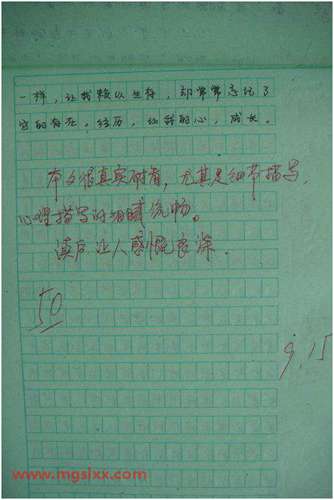 一样，让我赖以生存，却常常忘记了
它的存在。经历，似我的心，成长。
本文很真实耐看，尤其是细节描写，
心理描写的细腻流畅。
读后让人感慨良深。
50
9.15
www.mgslxx.com